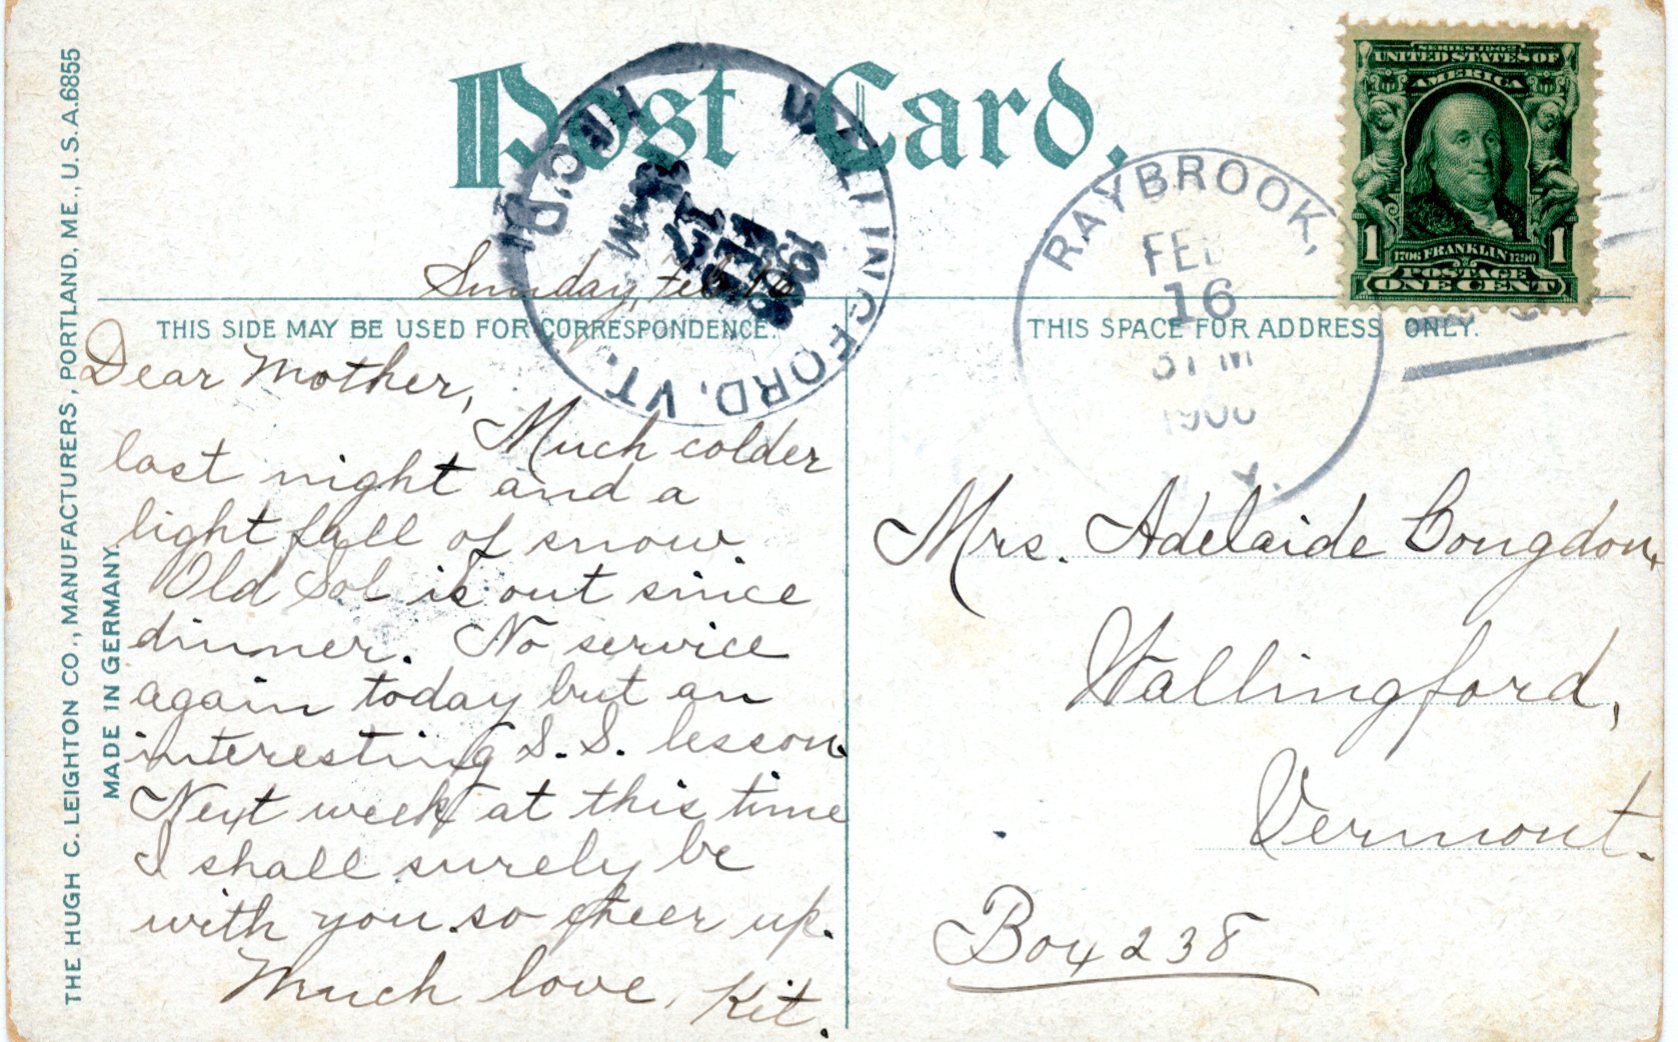 Post Card.
WALLINGFORD, VT.
REC'D.
1908
FEB
17
M
RAYBROOK,
FEB
16
M
190
Y.
SERIES 1902
UNITED STATES OF
AMERICA
1 1706 FRANKLIN 1790 1
POSTAGE
ONE CENT
THIS SIDE MAY BE USED FOR CORRESPONDENCE.
THIS SPACE FOR ADDRESS ONLY.
THE HUGH C. LEIGHTON CO., MANUFACTURERS, PORTLAND, ME., U.S.A. 6855
MADE IN GERMANY.
Sunday, Feb. 16
Dear Mother,
Much colder
last night and a
light fall of snow.
Old Sol is out since
dinner. No service
again today but an
interesting S. S. lesson.
Next week at this time
I shall surely be
with you so cheer up.
Much love, Kit.
Mrs. Adelaide Congdon,
Wallingford,
Vermont.
Box 238